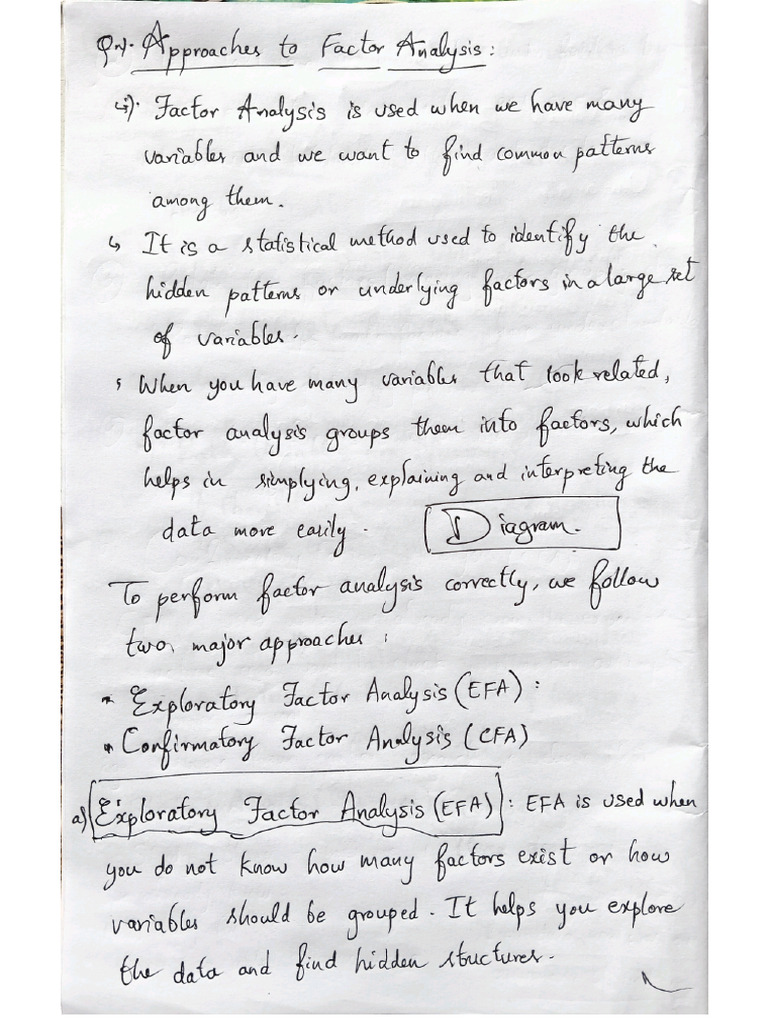 Qn). Approaches to Factor Analysis:
i). Factor Analysis is used when we have many
variables and we want to find common patterns
among them.
↳ It is a statistical method used to identify the
hidden patterns or underlying factors in a large set
of variables.
↳ When you have many variables that look related,
factor analysis groups them into factors, which
helps in simplying, explaining and interpreting the
data more easily.
Diagram.
To perform factor analysis correctly, we follow
two, major approaches:
* Exploratory Factor Analysis (EFA):
* Confirmatory Factor Analysis (CFA)
a) Exploratory Factor Analysis (EFA): EFA is used when
you do not know how many factors exist or how
variables should be grouped. It helps you explore
the data and find hidden structures.